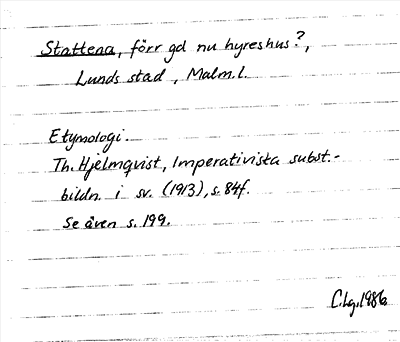 Stattena, förr gd nu hyreshus?,
Lunds stad, Malm.l.
Etymologi.
Th. Hjelmqvist, Imperativiska subst.-
bildn. i sv. (1913), s. 84f.
Se även s. 199.
C.Lg. 1986